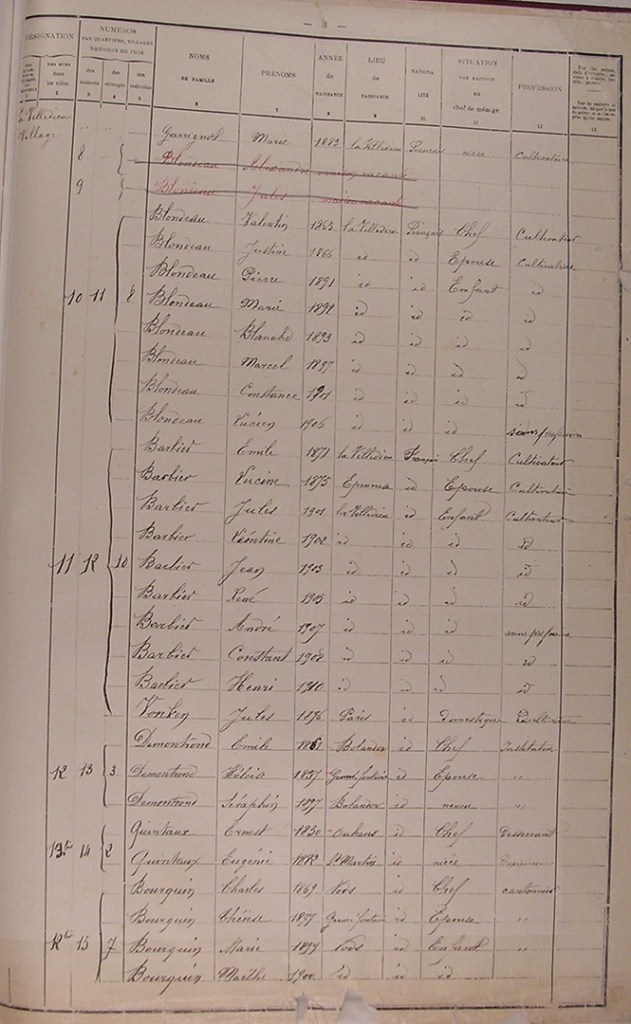 — 3 —
DÉSIGNATION
NUMÉROS
PAR QUARTIERS, VILLAGES
des maisons
des ménages
des individus
NOMS
DE FAMILLE
PRÉNOMS
ANNÉE
de
NAISSANCE
LIEU
de
NAISSANCE
NATIONALITÉ
SITUATION
PAR RAPPORT
au
chef de ménage
PROFESSION
La Villedieu
Village
Marie 1883 la Villedieu Français nièce Cultivatrice
8 Blondeau Alexandre maison vacante
9 Blondeau Jules maison vacante
Blondeau Valentin 1863 la Villedieu Français Chef Cultivateur
Blondeau Justine 1866 id id Epouse Cultivatrice
Blondeau Pierre 1891 id id Enfant id
10 11 8 Blondeau Marie 1892 id id id id
Blondeau Blanche 1893 id id id id
Blondeau Marcel 1897 id id id id
Blondeau Constance 1901 id id id id
Blondeau Lucien 1906 id id id sans profession
Barbier Emile 1871 la Villedieu Français Chef Cultivateur
Barbier Lucine 1875 id Epouse
Barbier Jules 1901 la Villedieu id Enfant Cultivateur
Barbier Léontine 1902 id id id id
11 12 10 Barbier Jean 1903 id id id id
Barbier René 1905 id id id id
Barbier André 1907 id id id
Barbier Constant 1908 id id id id
Barbier Henri 1910 id id id id
Jules 1896 Paris id domestique
Demontrond Emile 1861 Bolandoz id Chef Instituteur
12 13 3 Demontrond 1857 id Epouse "
Demontrond Séraphin 1897 Bolandoz id neveu "
Quintaux Ernest 1850 id Chef Desservant
13b 14 2 Quintaux Eugénie 1882 St Martin id nièce
Bourquin Charles 1869 id Chef cantonnier
Bourquin Thérèse 1877 id Epouse "
12b 15 7 Bourquin Marie 1899 id Enfant "
Bourquin Marthe 1900 id id id